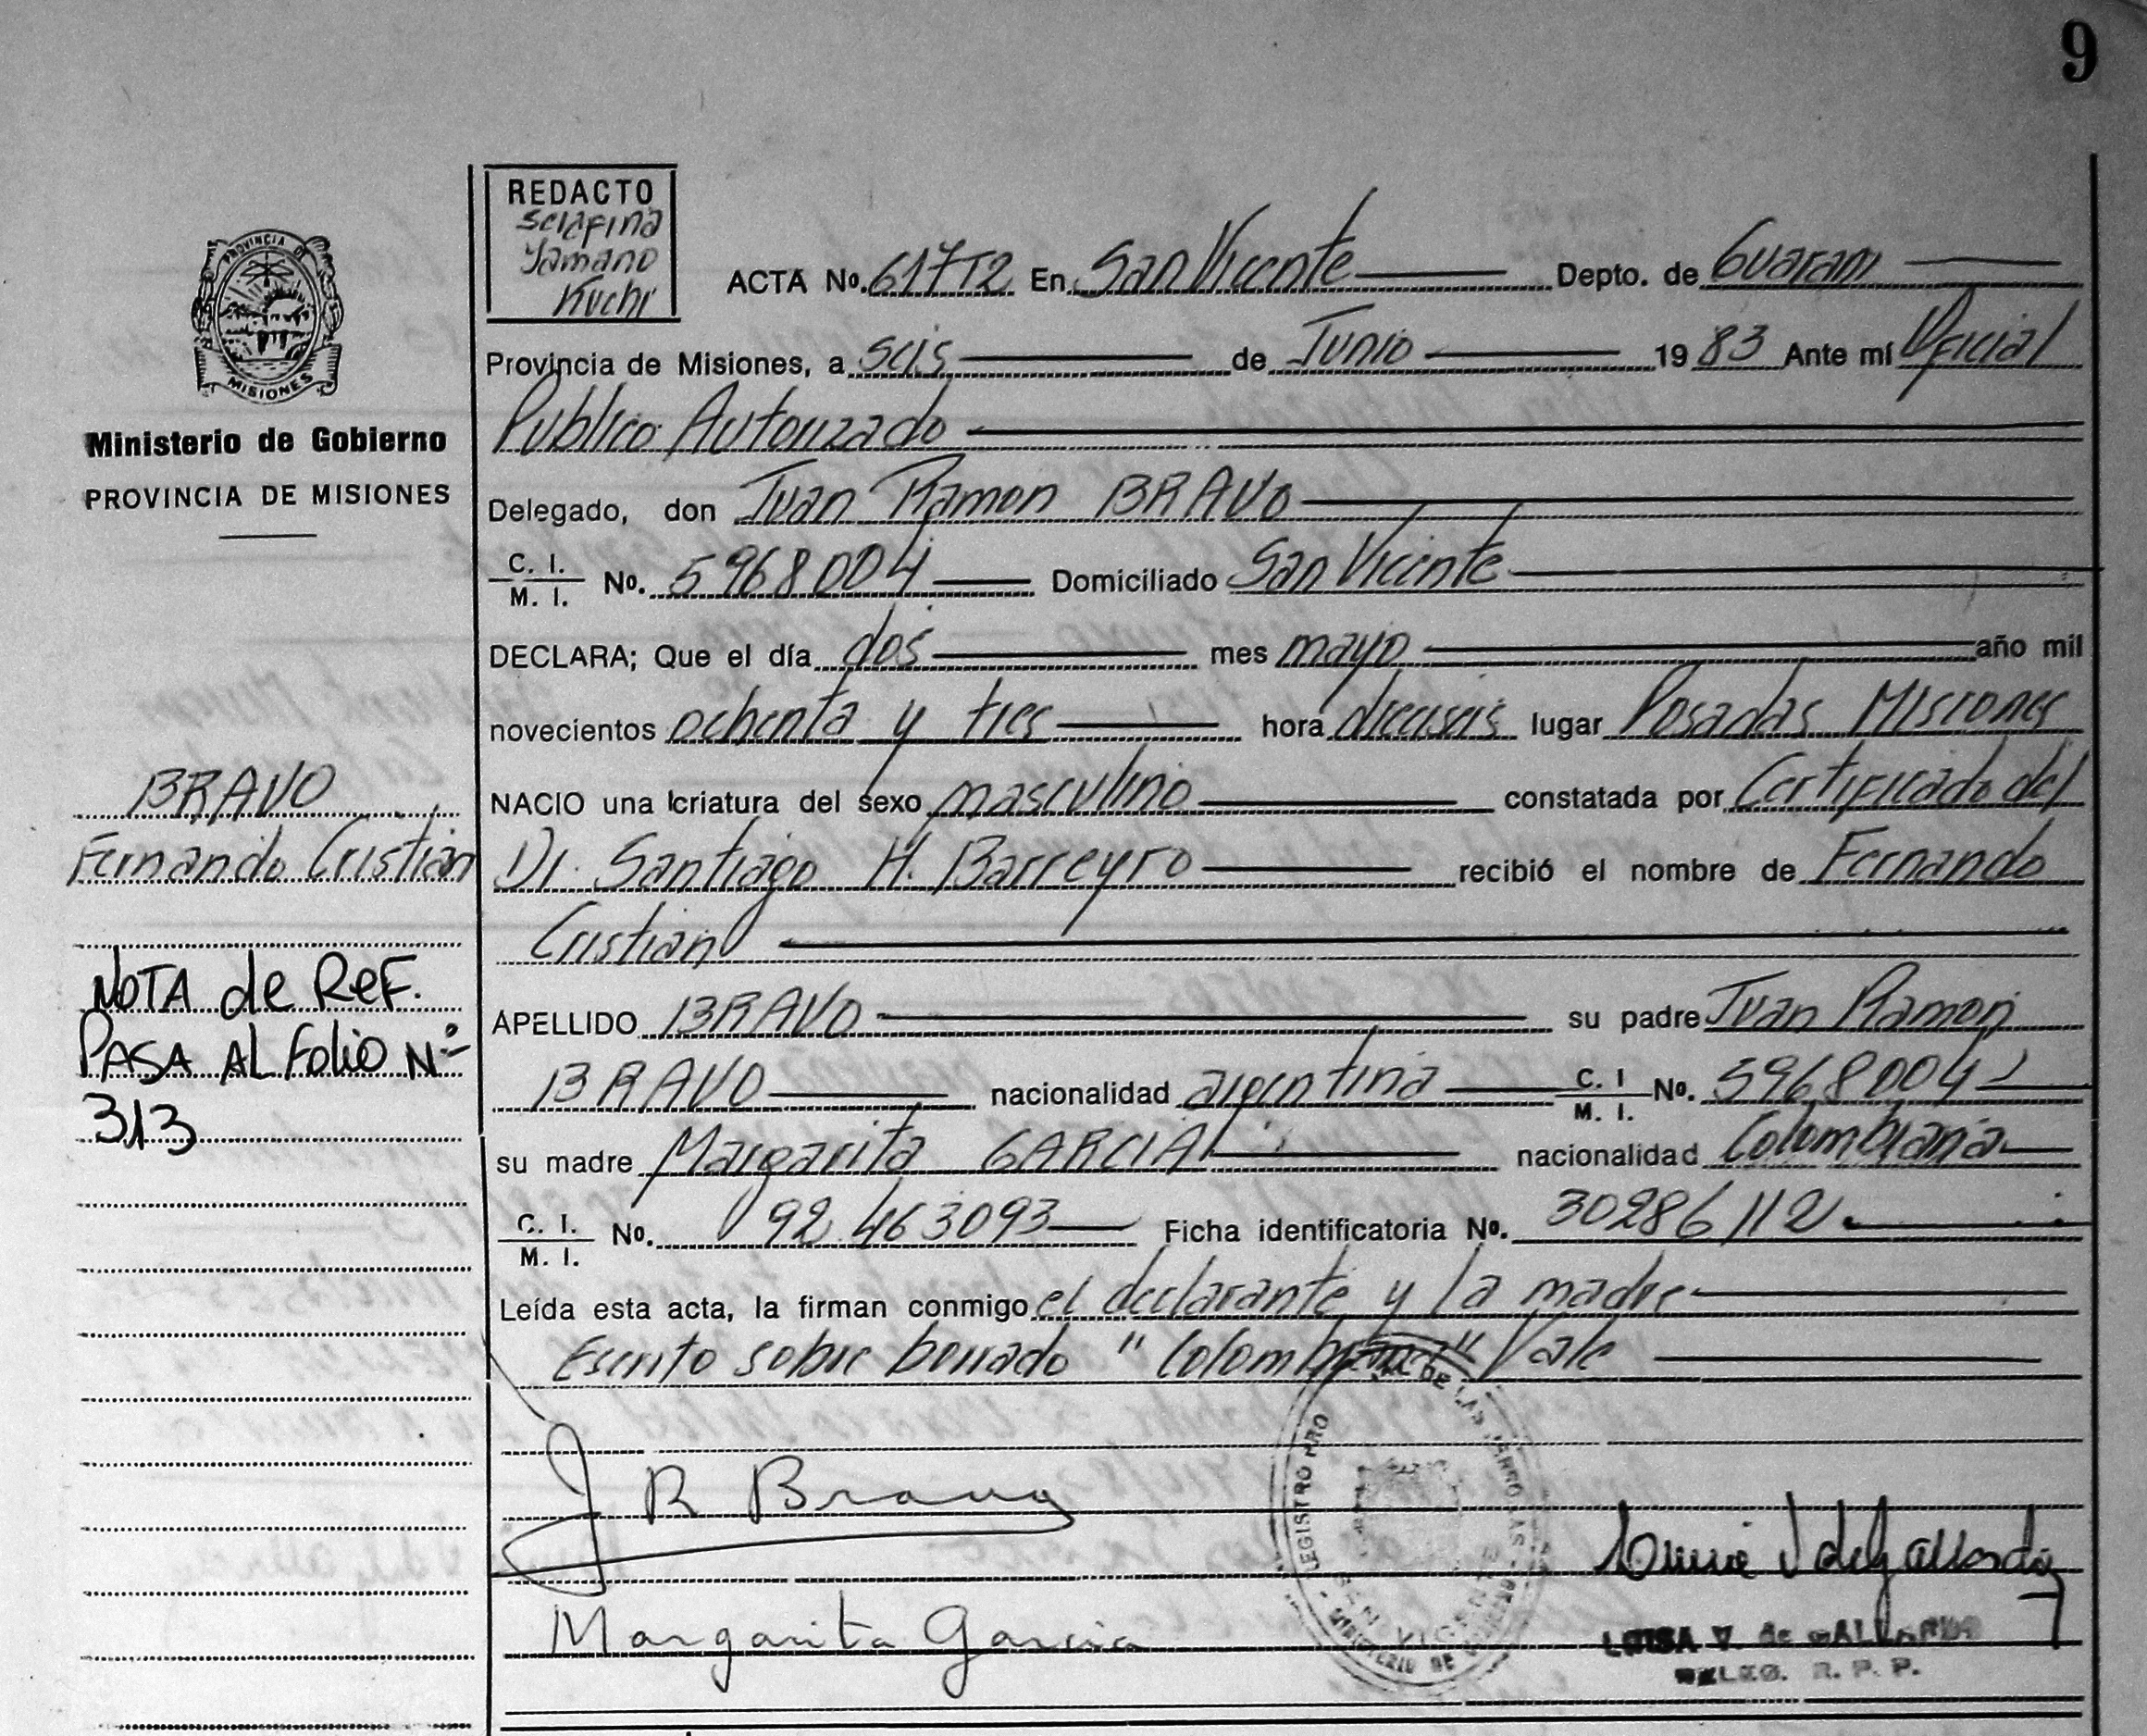 9
REDACTO
Serafina
Yamano
Kuchi
PROVINCIA DE
MISIONES
Ministerio de Gobierno
PROVINCIA DE MISIONES
ACTA No. 617T2 En San Vicente Depto. de Guaraní
Provincia de Misiones, a seis de Junio 1983 Ante mí Oficial
Publico Autorizado
Delegado, don Juan Ramon BRAVO
C. I. / M. I. No. 5968004 Domiciliado San Vicente
DECLARA; Que el día dos mes mayo año mil
novecientos ochenta y tres hora dieciseis lugar Posadas Misiones
NACIO una criatura del sexo masculino constatada por Certificado del
Dr. Santiago H. Barreyro recibió el nombre de Fernando
Cristian
APELLIDO BRAVO su padre Juan Ramon
BRAVO nacionalidad argentina C. I / M. I. No. 5968004
su madre Margarita GARCIA nacionalidad Colombiana
C. I. / M. I. No. 92.463093 Ficha identificatoria No. 30286112.
Leída esta acta, la firman conmigo el declarante y la madre
Escrito sobre borrado "Colombiana" Vale
BRAVO
Fernando Cristian
NOTA de REF.
PASA AL Folio Nº
313
J R Bravo
Margarita Garcia
LUISA V. de GALLARDO
DELEG. R. P. P.